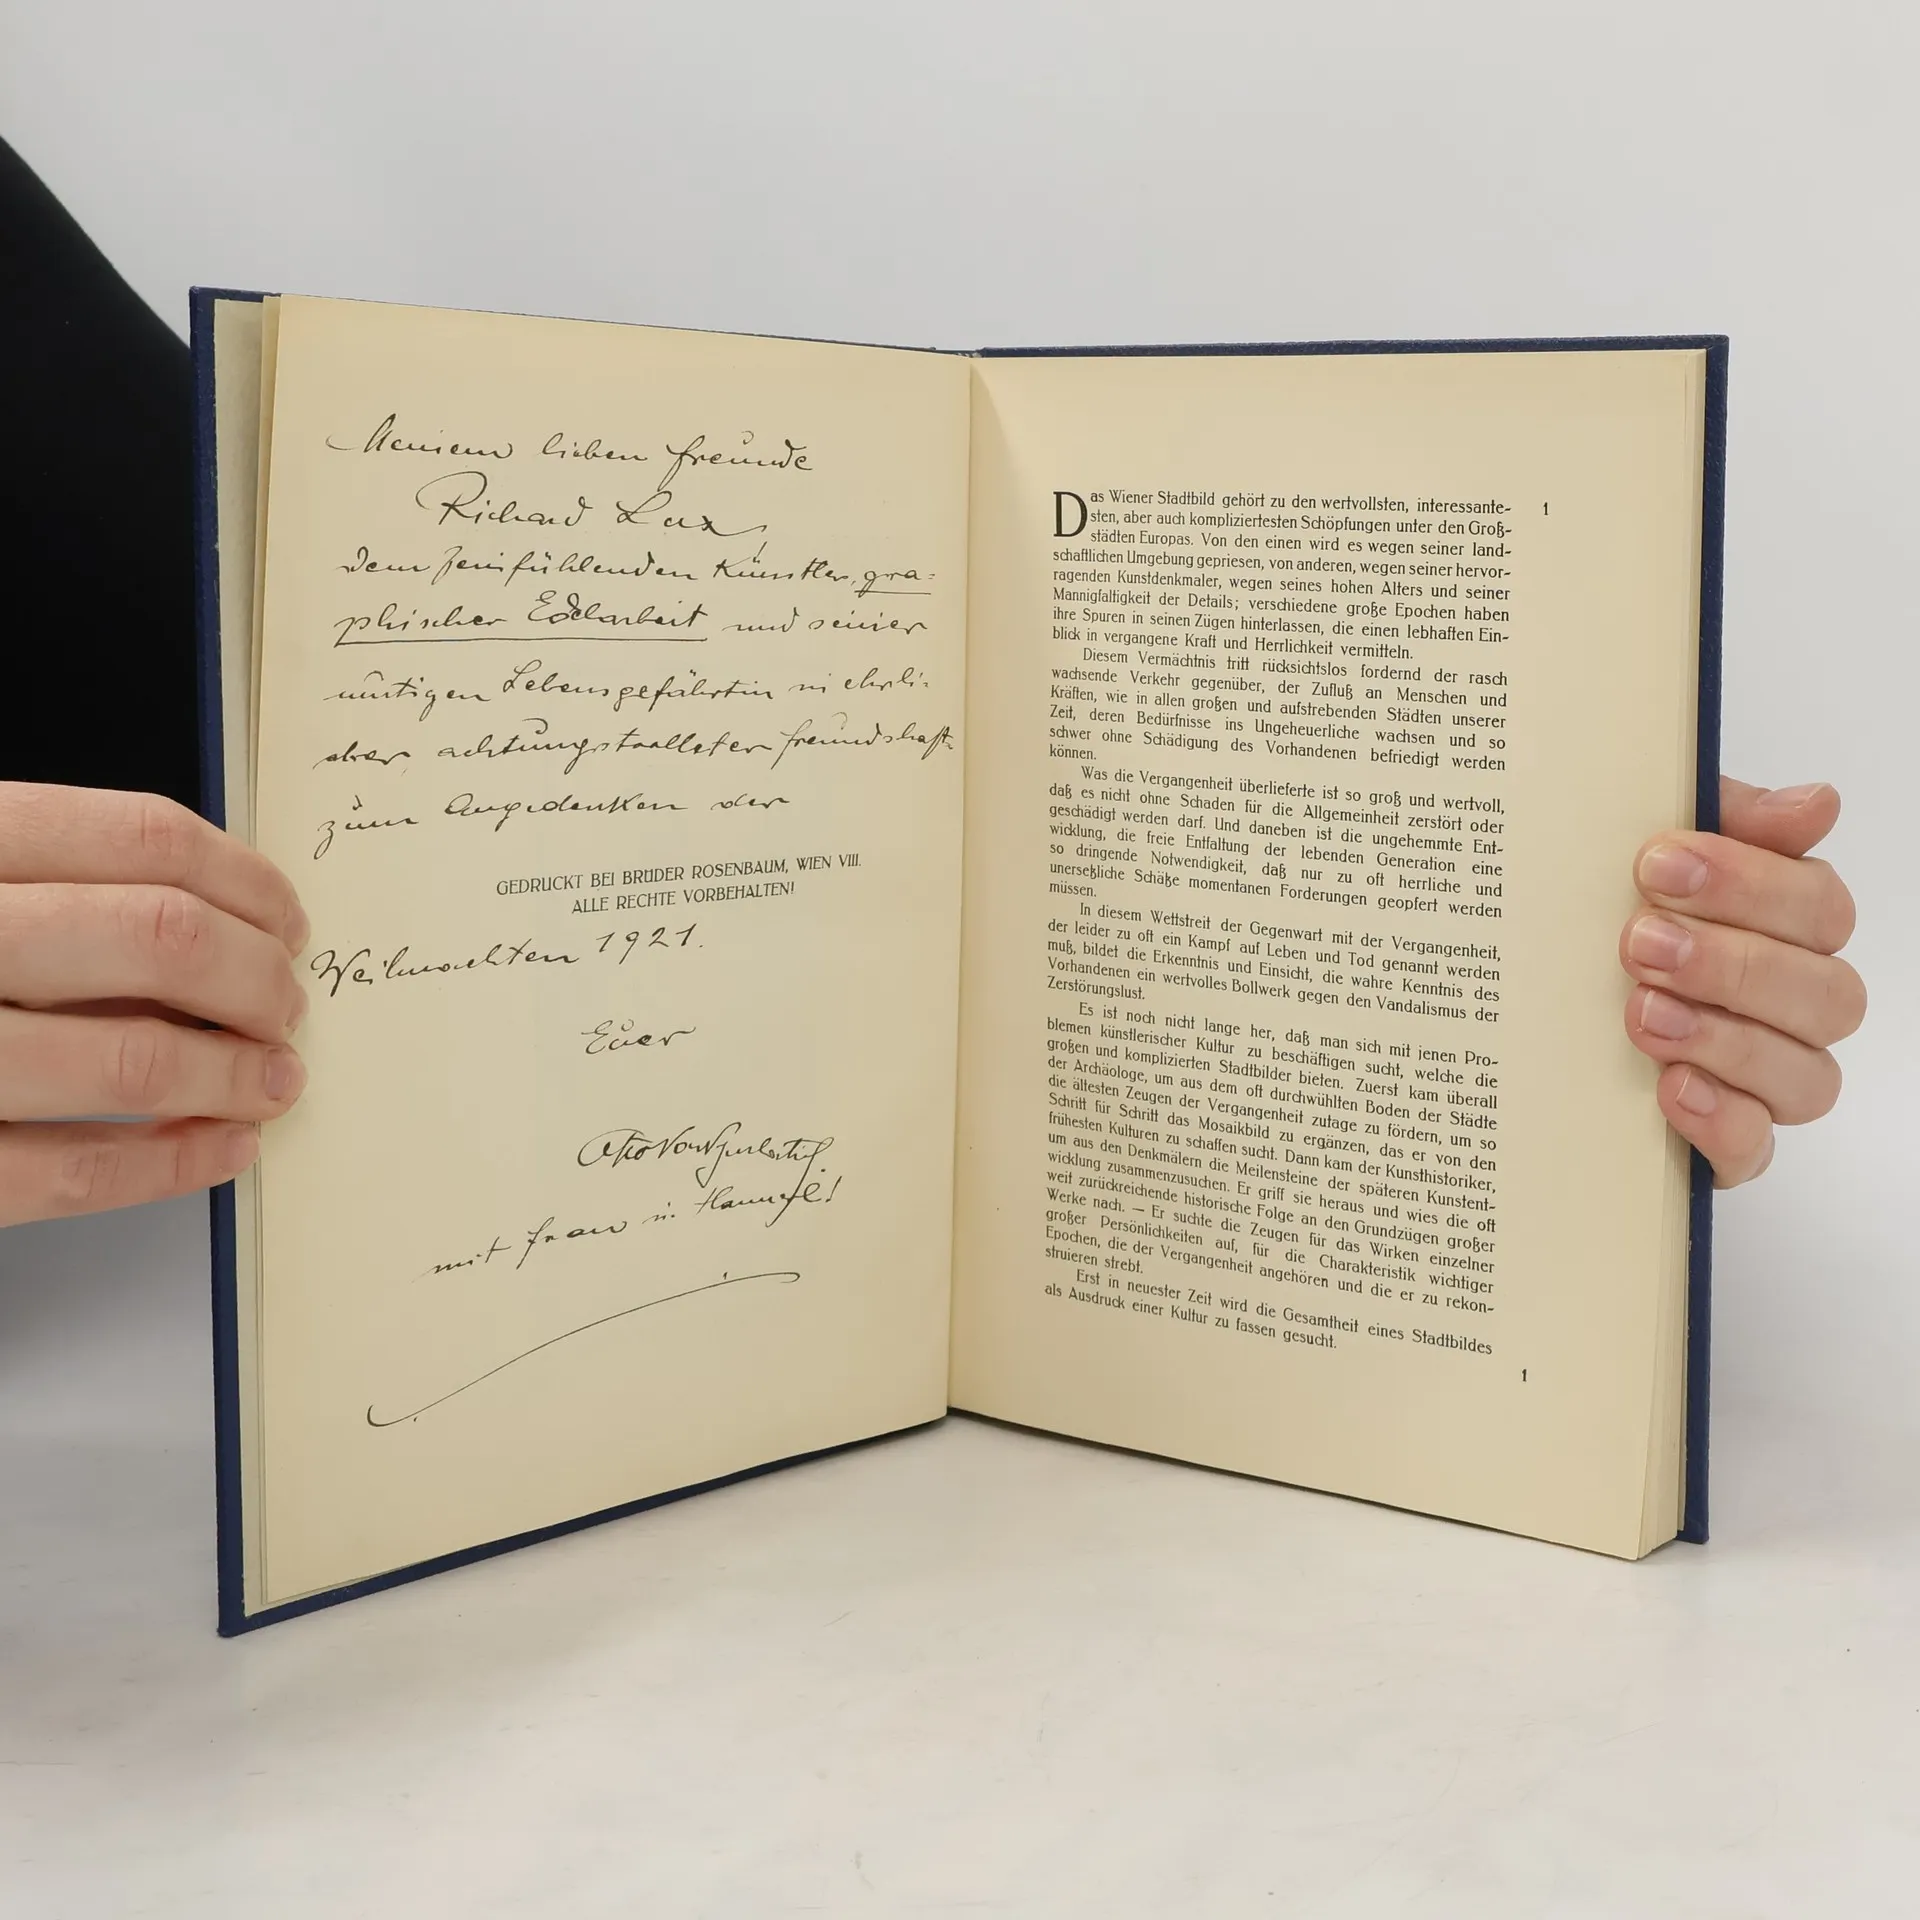 Meinem lieben Freunde
Richard Lux
dem feinfühlenden Künstler, gra-
phischer Edelarbeit und seiner
mutigen Lebensgefährtin in ehrli-
cher, achtungsvollster Freundschaft
zum Angedenken der
GEDRUCKT BEI BRÜDER ROSENBAUM, WIEN VIII.
ALLE RECHTE VORBEHALTEN!
Weihnachten 1921.
Euer
Otto
mit Frau u. Hannerl!
Das Wiener Stadtbild gehört zu den wertvollsten, interessante-
sten, aber auch kompliziertesten Schöpfungen unter den Groß-
städten Europas. Von den einen wird es wegen seiner land-
schaftlichen Umgebung gepriesen, von anderen, wegen seiner hervor-
ragenden Kunstdenkmaler, wegen seines hohen Alters und seiner
Mannigfaltigkeit der Details; verschiedene große Epochen haben
ihre Spuren in seinen Zügen hinterlassen, die einen lebhaften Ein-
blick in vergangene Kraft und Herrlichkeit vermitteln.
Diesem Vermächtnis tritt rücksichtslos fordernd der rasch
wachsende Verkehr gegenüber, der Zufluß an Menschen und
Kräften, wie in allen großen und aufstrebenden Städten unserer
Zeit, deren Bedürfnisse ins Ungeheuerliche wachsen und so
schwer ohne Schädigung des Vorhandenen befriedigt werden
können.
Was die Vergangenheit überlieferte ist so groß und wertvoll,
daß es nicht ohne Schaden für die Allgemeinheit zerstört oder
geschädigt werden darf. Und daneben ist die ungehemmte Ent-
wicklung, die freie Entfaltung der lebenden Generation eine
so dringende Notwendigkeit, daß nur zu oft herrliche und
unersetzliche Schätze momentanen Forderungen geopfert werden
müssen.
In diesem Wettstreit der Gegenwart mit der Vergangenheit,
der leider zu oft ein Kampf auf Leben und Tod genannt werden
muß, bildet die Erkenntnis und Einsicht, die wahre Kenntnis des
Vorhandenen ein wertvolles Bollwerk gegen den Vandalismus der
Zerstörungslust.
Es ist noch nicht lange her, daß man sich mit jenen Pro-
blemen künstlerischer Kultur zu beschäftigen sucht, welche die
großen und komplizierten Stadtbilder bieten. Zuerst kam überall
der Archäologe, um aus dem oft durchwühlten Boden der Städte
die ältesten Zeugen der Vergangenheit zutage zu fördern, um so
Schritt für Schritt das Mosaikbild zu ergänzen, das er von den
frühesten Kulturen zu schaffen sucht. Dann kam der Kunsthistoriker,
um aus den Denkmälern die Meilensteine der späteren Kunstent-
wicklung zusammenzusuchen. Er griff sie heraus und wies die oft
weit zurückreichende historische Folge an den Grundzügen großer
Werke nach. — Er suchte die Zeugen für das Wirken einzelner
großer Persönlichkeiten auf, für die Charakteristik wichtiger
Epochen, die der Vergangenheit angehören und die er zu rekon-
struieren strebt.
Erst in neuester Zeit wird die Gesamtheit eines Stadtbildes
als Ausdruck einer Kultur zu fassen gesucht.
1
1